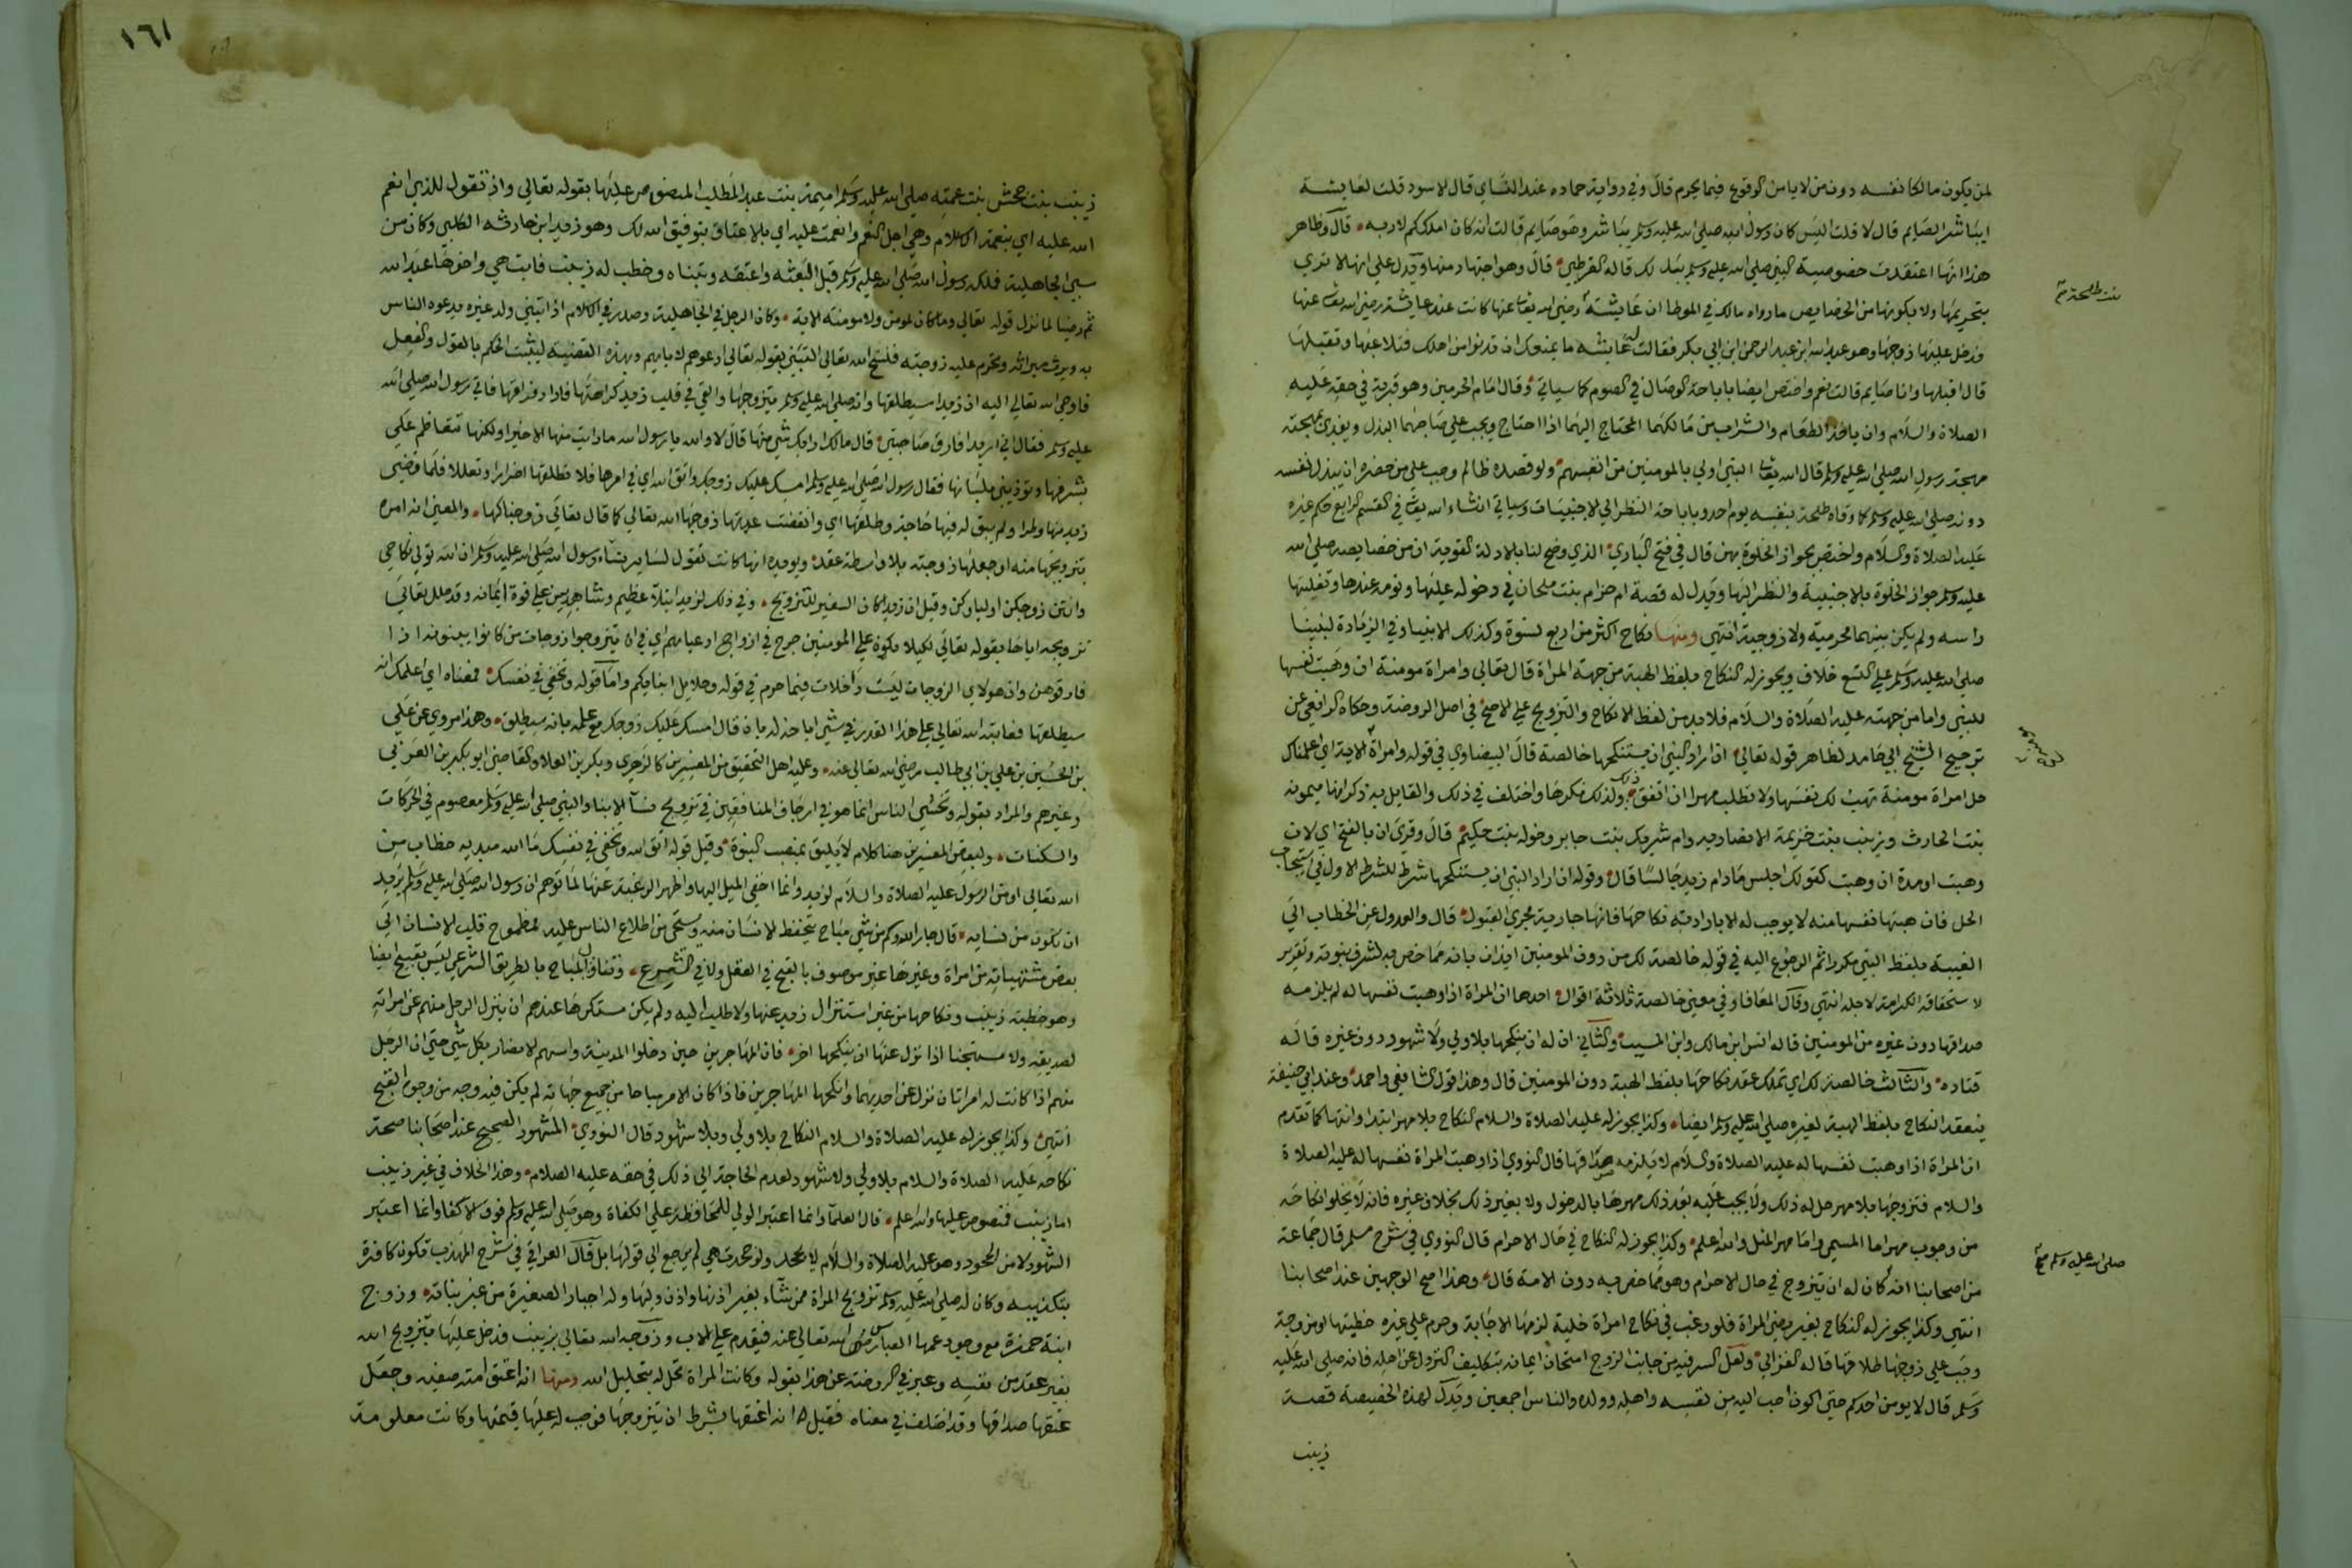 لمن يكون مالكا نفسه دون من لا يامن الوقوع فيما يحرم قال وفي رواية حماد عند النساي قال الاسود قلت لعايشة
ايباشر الصايم قال لا قلت اليس كان رسول الله صلى الله عليه وسلم يباشر وهو صايم قالت انه كان املككم لاربه قال وظاهر
هذا انها اعتقدت خصوصية النبي صلى الله عليه وسلم بذلك قاله القرطبي قال وهو اجتهاد منها ويدل على انها لا ترى
بتحريمها ولا بكونها من الخصايص ما رواه مالك في الموطا ان عايشة بنت طلحة رضي الله تعا عنها كانت عند عايشة رضي الله تعا عنها
فدخل عليها زوجها وهو عبد الله ابن عبد الرحمن ابن ابي بكر فقالت له عايشة ما يمنعك ان تدنو من اهلك فتلاعبها وتقبلها
قال اقبلها وانا صايم قالت نعم واختص ايضا باباحة الوصال في الصوم كما سياتي وقال امام الحرمين وهو قربة في حقه عليه
الصلاة والسلام وان ياخذ الطعام والشراب من مالكهما المحتاج اليهما اذا احتاج ويجب على صاحبهما البذل ويفدي بمهجته
مهجة رسول الله صلى الله عليه وسلم قال الله تعا النبي اولى بالمومنين من انفسهم ولو قصده ظالم وجب على من حضره ان يبذل نفسه
دونه صلى الله عليه وسلم كما وقاه طلحة بنفسه يوم احد وباباحة النظر الى الاجنبيات وسياتي انشاء الله تعا في القسم الرابع حكم غيره
عليه الصلاة والسلام واختص بجواز الخلوة بهن قال في فتح الباري الذي وضح لنا بالادلة القوية ان من خصايصه صلى الله
عليه وسلم جواز الخلوة بالاجنبية والنظر اليها ويدل له قصة ام حرام بنت ملحان في دخوله عليها ونومه عندها وتفليتها
راسه ولم يكن بينهما محرمية ولا زوجية انتهى ومنها نكاح اكثر من اربع نسوة وكذلك الانبياء وفي الزيادة لنبينا
صلى الله عليه وسلم على التسع خلاف ويجوز له النكاح بلفظ الهبة من جهة المراة قال تعالى وامراة مومنة ان وهبت نفسها
للنبي واما من جهته عليه الصلاة والسلام فلا بد من لفظ الانكاح والتزويج على الاصح في اصل الروضة وحكاه الرافعي عن
ترجيح الشيخ ابي حامد لظاهر قوله تعالى ان اراد النبي ان يستنكحها خالصة قال البيضاوي في قوله وامراة الاية اي اعلمناك
حل امراة مومنة تهب لك نفسها ولا تطلب مهرا ان اتفق ذلك ولذلك نكرها واختلف في ذلك والقايل به ذكر انها ميمونة
بنت الحارث وزينب بنت خزيمة الانصارية وام شريك بنت جابر وخولة بنت حكيم قال وقرى ان بالفتح اي لان
وهبت او مدة ان وهبت كقولك اجلس مادام زيد جالسا قال وقوله ان اراد النبي ان يستنكحها شرط للشرط الاول في استيجاب
الحل فان هبتها نفسها منه لا يوجب له الا بارادته نكاحها فانها جارية مجرى القبول قال والعدول عن الخطاب الى
الغيبة بلفظ النبي مكررا ثم الرجوع اليه في قوله خالصة لك من دون المومنين ايذان بانه مما خص به لشرف نبوته وتقرير
لاستحقاقه الكرامة لاجله انتهى وقال المعافا وفي معنى خالصة ثلاثة اقوال احدها ان المراة اذا وهبت نفسها له لم يلزمه
صداقها دون غيره من المومنين قاله انس ابن مالك وابن المسيب والثاني ان له ان ينكحها بلا ولي ولا شهود دون غيره قاله
قتاده والثالث خالصة لك اي تملك عقد نكاحها بلفظ الهبة دون المومنين قال وهذا قول الشافعي واحمد وعند ابي حنيفة
ينعقد النكاح بلفظ الهبة لغيره صلى الله عليه وسلم ايضا وكذا يجوز له عليه الصلاة والسلام النكاح بلا مهر ابتدا وانتها كما تقدم
ان المراة اذا وهبت نفسها له عليه الصلاة والسلام لا يلزمه صداقها قال النووي اذا وهبت المراة نفسها له عليه الصلاة
والسلام فتزوجها بلا مهر حل له ذلك ولا يجب عليه بعد ذلك مهرها بالدخول ولا بغير ذلك بخلاف غيره فانه لا يخلو نكاحه
من وجوب مهر اما المسمى واما مهر المثل والله اعلم وكذا يجوز له النكاح في حال الاحرام قال النووي في شرح مسلم قال جماعة
من اصحابنا انه كان له ان يتزوج في حال الاحرام وهو مما خص به دون الامة قال وهذا اصح الوجهين عند اصحابنا
انتهى وكذا يجوز له النكاح بغير رضى المراة فلو رغب في نكاح امراة خلية لزمها الاجابة وحرم على غيره خطبتها او مزوجة
وجب على زوجها طلاقها قاله الغزالي ولعل السر فيه من جانب الزوج امتحان ايمانه بتكليف النزول عن اهله فانه صلى الله عليه
وسلم قال لا يومن احدكم حتى اكون احب اليه من نفسه واهله وولده والناس اجمعين ويدل لهذه الخصيصة قصة
زينب
بنت طلحة صح
صلى الله عليه وسلم صح
١٦١
زينب بنت جحش بنت عمته صلى الله عليه وسلم اميمة بنت عبد المطلب المنصوص عليها بقوله تعالى واذ تقول للذي انعم
الله عليه اي بنعمة الاسلام وهي اجل النعم وانعمت عليه اي بالاعتاق بتوفيق الله لك وهو زيد ابن حارثه الكلبي وكان من
سبي الجاهلية فملكه رسول الله صلى الله عليه وسلم قبل البعثه واعتقه وتبناه وخطب له زينب فابت هي واخوها عبد الله
ثم رضيا لما نزل قوله تعالى وما كان لمومن ولا مومنة الاية وكان الرجل في الجاهلية وصدر في الاسلام اذا تبنى ولد غيره يدعوه الناس
به ويرث ميراثه وتحرم عليه زوجته فنسخ الله تعالى التبني بقوله تعالى ادعوهم لابايهم وبهذه القضية ليثبت الحكم بالقول والفعل
فاوحى الله تعالى اليه ان زيدا سيطلقها وانه صلى الله عليه وسلم يتزوجها والقى في قلب زيد كراهتها فاراد فراقها فاتى رسول الله صلى الله
عليه وسلم فقال اني اريد افارق صاحبتي قال مالك ارابك شي منها قال لا والله يا رسول الله ما رايت منها الا خيرا ولكنها تتعاظم علي
بشرفها وتوذيني بلسانها فقال رسول الله صلى الله عليه وسلم امسك عليك زوجك واتق الله اي في امرها فلا تطلقها اضرارا وتعللا فلما قضى
زيد منها وطرا ولم يبق له فيها حاجة وطلقها اي وانقضت عدتها زوجها الله تعالى كما قال تعالى زوجناكها والمعنى انه امره
بتزويجها منه او جعلها زوجته بلا واسطة عقد ويويده انها كانت تقول لساير نساء رسول الله صلى الله عليه وسلم ان الله تولى نكاحي
وانتن زوجكن اولياوكن وقيل ان زيدا كان السفير للتزويج وفي ذلك لزيد ابتلاء عظيم وشاهد بين على قوة ايمانه وقد علل تعالى
تزويجه اياها بقوله تعالى لكيلا يكون على المومنين حرج في ازواج ادعيايهم اي في ان يتزوجوا زوجات من كانوا يبنونه اذا
فارقوهن وان هولاي الزوجات ليست داخلات فيما حرم في قوله وحلايل ابنايكم واما قوله وتخفي في نفسك فمعناه اي اعلمك انه
سيطلقها فعاتبه الله تعالى على هذا القدر في شي اباحه له بان قال امسك عليك زوجك مع علمه بانه سيطلق وهذا مروي عن علي
بن الحسين بن علي بن ابي طالب رضي الله تعالى عنه وعليه اهل التحقيق من المفسرين كالزهري وبكر بن العلاء والقاضي ابو بكر بن العربي
وغيرهم والمراد بقوله وتخشى الناس انما هو في ارجاف المنافقين في تزويج نسا الابنا والنبي صلى الله عليه وسلم معصوم في الحركات
والسكنات ولبعض المفسرين هنا كلام لا يليق بمنصب النبوة وقيل قوله اتق الله وتخفي في نفسك ما الله مبديه خطاب من
الله تعالى او من الرسول عليه الصلاة والسلام لزيد وانما اخفى الميل اليها واظهر الرغبة عنها لما توهم ان رسول الله صلى الله عليه وسلم يريد
ان تكون من نسايه قال جار الله وكم من شي مباح يتحفظ الانسان منه ويستحي من اطلاع الناس عليه فطموح قلب الانسان الى
بعض مشتهياته من امراة وغيرها غير موصوف بالقبح في العقل ولا في الشرع وتناول المباح بالطريق الشرعي ليس بقبيح ايضا
وهو خطبة زينب ونكاحها من غير استنزال زيد عنها ولا طلب اليه ولم يكن مستكرها عندهم ان ينزل الرجل منهم عن امراته
لصديقه ولا مستهجنا اذا نزل عنها ان ينكحها اخر فان المهاجرين حين دخلوا المدينة واسهم الانصار بكل شي حتى ان الرجل
منهم اذا كانت له امراتان نزل عن احديهما وانكحها المهاجرين فاذا كان الامر مباحا من جميع جهاته لم يكن فيه وجه من وجوه القبح
انتهى وكذا يجوز له عليه الصلاة والسلام النكاح بلا ولي وبلا شهود قال النووي المشهور الصحيح عند اصحابنا صحة
نكاحه عليه الصلاة والسلام بلا ولي ولا شهود لعدم الحاجة الى ذلك في حقه عليه الصلام وهذا الخلاف في غير زينب
اما زينب فمنصوص عليها والله اعلم قال العلما وانما اعتبر الولي للمحافظة على الكفاة وهو صلى الله عليه وسلم فوق الاكفا وانما اعتبر
الشهود لامن الجحود وهو عليه الصلاة والسلام لا يجحد ولو جحدت هي لم يرجع الى قولها بل قال العراقي في شرح المهذب تكون كافرة
بتكذيبه وكان له صلى الله عليه وسلم تزويج المراة ممن شاء بغير اذنها واذن وليها وله اجبار الصغيرة من غير بناته وزوج
ابنة حمزة مع وجود عمها العباس رضي الله تعالى عنه فيقدم على الاب وزوجه الله تعالى بزينب فدخل عليها بتزويج الله
بغير عقد من نفسه وعبر في الروضة عن هذا بقوله وكانت المراة تحل له بتحليل الله ومنها انه اعتق امته صفيه وجعل
عتقها صداقها وقد اختلف في معناه فقيل انه اعتقها بشرط ان يتزوجها فوجب له عليها قيمتها وكانت معلومة